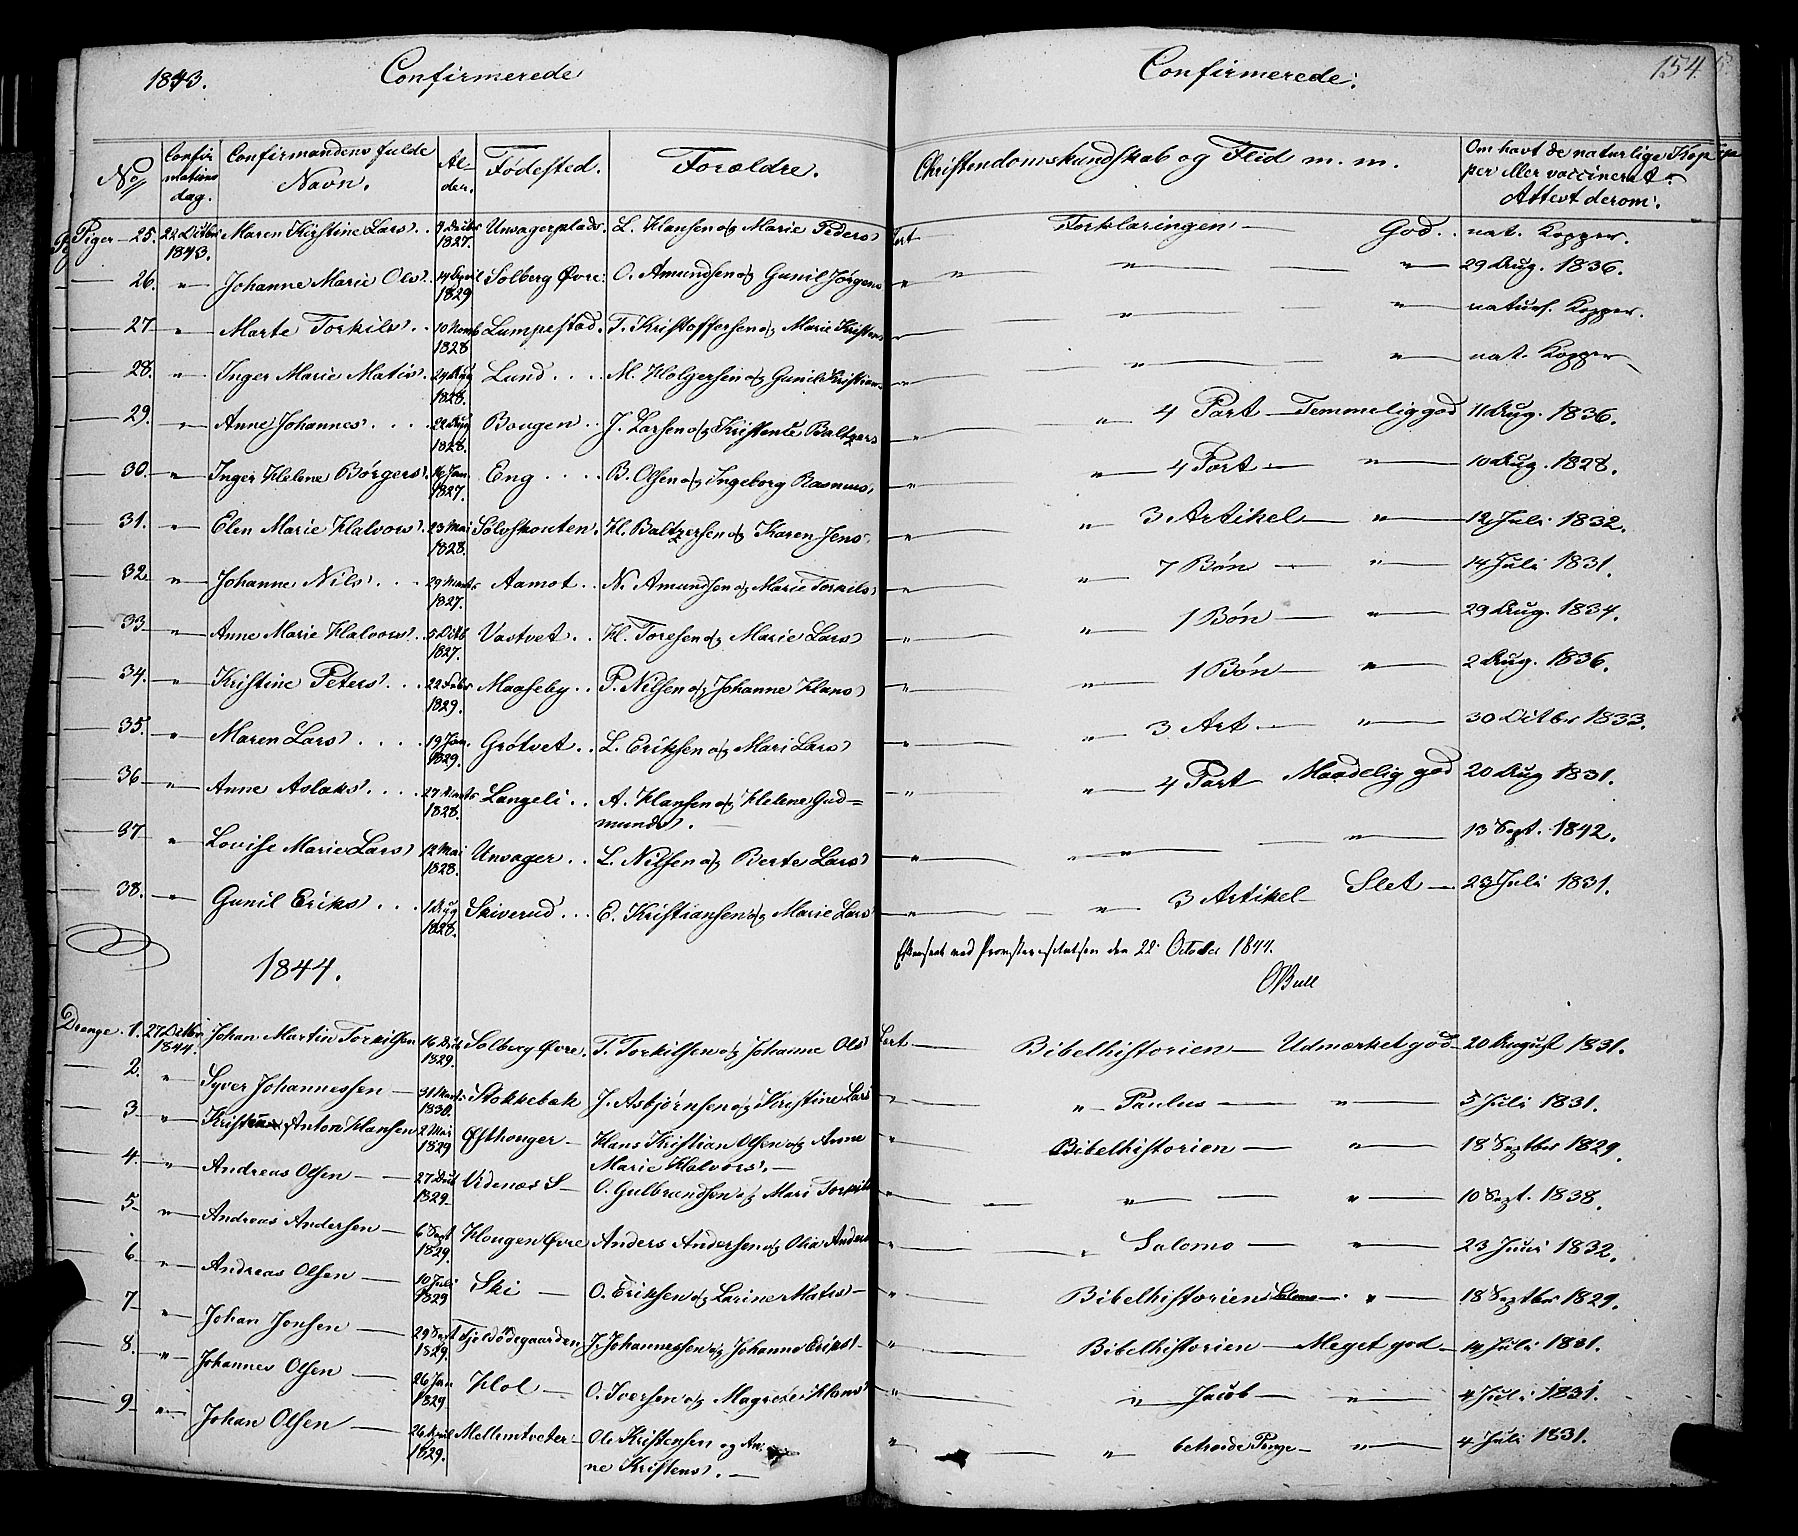 1843. Confirmerede
No Confirmations dag. Confirmandens fulde Navn. Alder. Fødested. Forældre.
Piger 25. 22 Octbr 1843. Maren Kirstine Lars. 9 Decbr 1827. Unvagerplads. L. Hansen og Marie Peders
26. " Johanne Marie Ols. 14 April 1829 Solberg Øvre. O. Amundsen og Gunil Jørgens
27. " Marte Torkils. 10 Novb 1828 Lumpestad. T. Kristoffersen og Marie Kristens
28. " Inger Marie Matis. 1828. Lund. M. Holgersen og Gunil Kristians
29. " Anne Johannes. 1828. Bougen. J. Larsen og Kristense Baltzers
30. " Inger Helene Børgers. 16 Jan. 1827. Eng. B. Olsen og Ingeborg Rasmus
31. " Elen Marie Halvors. 23 Mai 1828. Sølvskouten. H. Baltzersen og Karen Jens
32. " Johanne Nils. 29 Marts 1827. Aamot. N. Amundsen og Marie Torkils
33 " Anne Marie Halvors. 5 Octb 1827. Vastvet. H. Toresen og Marie Lars
34. " Kristine Peters. 22 Febr 1829. Maaseby. P. Nilsen og Johanne Hans
35. " Maren Lars. 19 Jan. 1829. Grøtvet. L. Eriksen og Mari Lars
36 " Anne Aslaks. 27 Marts 1828. Langeli. A. Hansen og Helene Gud=
munds.
37 " Lovise Marie Lars 12 Mai 1828. Unvager. L. Nilsen og Berte Lars
38. " Gunil Eriks. 1 Aug 1828. Skiverud. E. Kristiansen og Marie Lars
1844.
Drenge 1. 27 Octbr 1844. Johan Martin Torkilsen 16 Decb 1829. Solberg Øvre. T. Torkilsen og Johanne Ols
2. " Syver Johannessen 31 Marts 1830. Stokkebæk J. Asbjørnsen og Kristine Lars
3 " Anton Hansen 2 Mai 1829 Øfthonger Hans Kristian Olsen og Anne
Marie Halvors.
4. " Andreas Olsen 27 1829. Videnæs S O. Gulbrandsen og Mari Torkils
5. " Andreas Andersen 6 Sept 1829. Hougen Øvre Anders Andersen og Olia Anders
6. " Andreas Olsen 10 Juli 1829 Ski O. Eriksen og Larine Matis
7. " Johan Jonsen 29 Sept 1829. Fjeldødegaarden J. Johannessen og Johanne Eriks
8. " Johannes Olsen 26 Jan 1829 Hol O. Iversen og Magrete Hans
9. " Johan Olsen 26 April 1829. Mellemtveter Ole Kristensen og An
ne Kristens.
Confirmerede. 154.
Christendomskundskab og Flid m. m. Om havt de naturlige Kop
per eller vaccineret.
Attest derom.
Lært Forklaringen God. nat. Kopper.
" " " 29 Aug. 1836.
" " " naturl. Kopper.
" " " nat. Kopper
" " 4 Part Temmelig god 11 Aug. 1836.
" " 4 Part " 10 Aug. 1828.
" " 3 Artikel " 12 Juli 1832.
" " 7 Bøn " 14 Juli 1831.
" " 1 Bøn " 29 Aug. 1834.
" " 1 Bøn " 2 Aug. 1836.
" " 3 Art. " 30 Octbr 1833.
" " 4 Part Maadelig god 20 Aug 1831.
" " " 13 Sept. 1842.
" " 3 Artikel Slet 23 Juli 1831.
den 22 October 1844.
OBull
Lært Bibelhistorien Udmærket god 20 August 1831.
" " Paulus " 5 Juli 1831.
" Bibelhistorien " 18 Septbr 1829.
" " " 10 Sept. 1838.
" " Salomo " 23 Juni 1832.
" Bibelhistorien Salomo " 18 Septbr 1829.
" Bibelhistorien Meget god 14 Juli 1831.
" " Jacob " 4 Juli 1831.
" " " 4 Juli 1831.